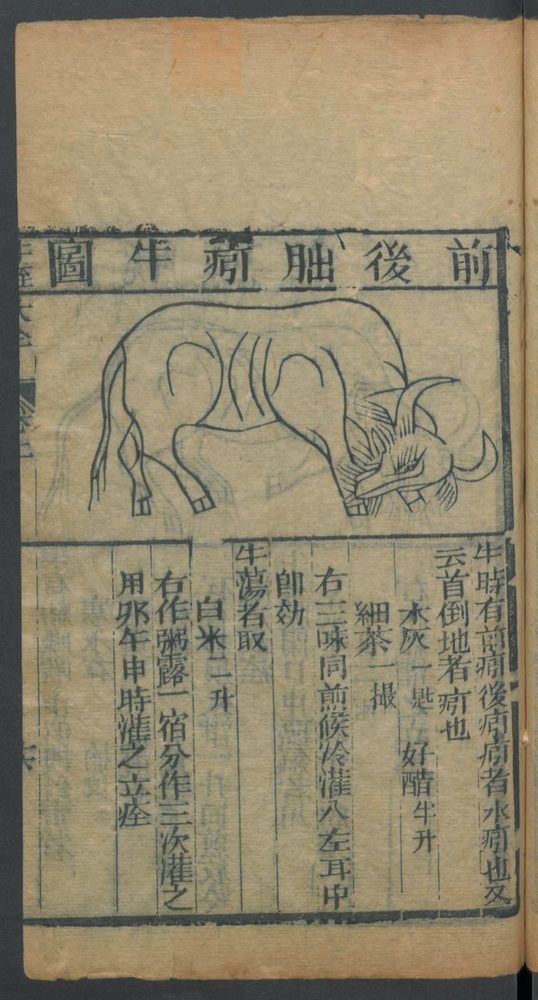 前後朏㾕牛圖
牛時有前㾕後㾕㾕者水㾕也又
云首倒地者㾕也
木灰一匙 好醋半升
細茶一撮
右三味同煎候冷灌入左耳中
即効
牛蕩者取
白米二升
右作粥露一宿分作三次灌之
用夘午申時灌之立痊